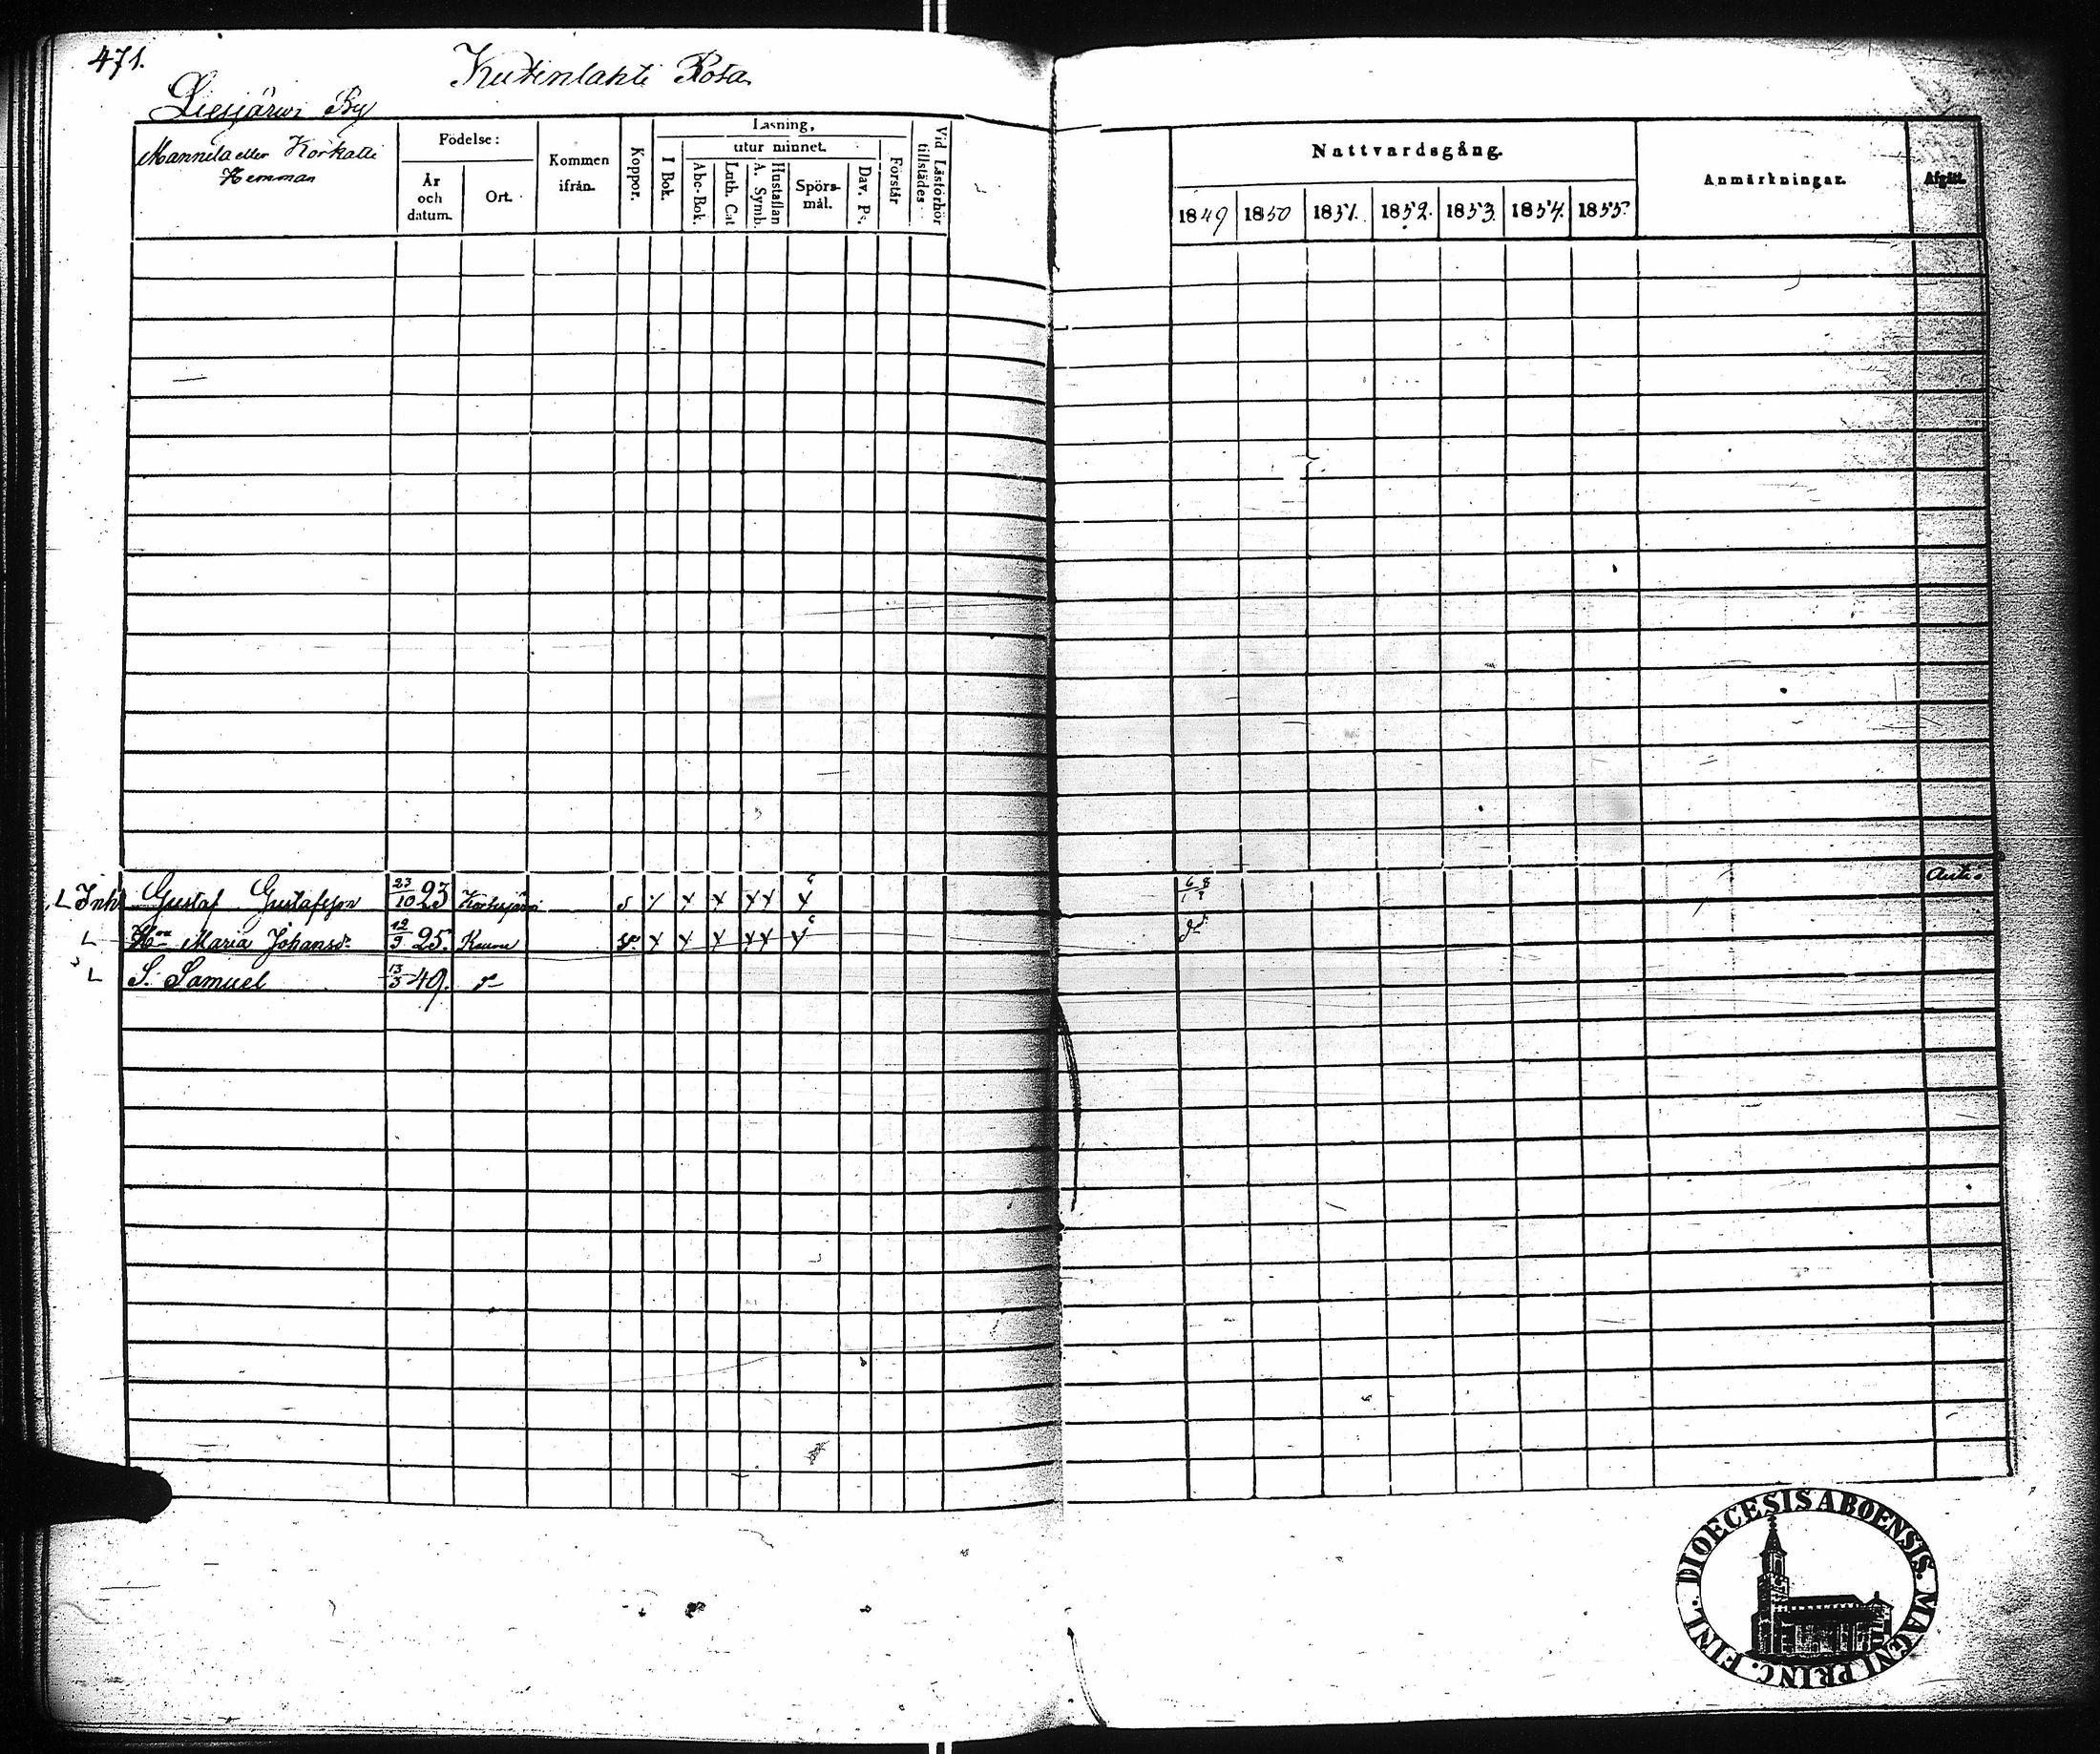 471.
Kutinlahti Rota
Liesjärwi By
Mannila eller Korkatti
Hemman
Födelse:
År och datum.
Ort.
Kommen ifrån.
Koppor.
Läsning,
I Bok.
utur minnet.
Abc-Bok.
Luth. Cat
Hustaflan A. Symb.
Spörs-mål.
Dav. Ps.
Förstår
Vid Läsförhör tillstädes
Nattvardsgång.
1849 1850 1851. 1852. 1853. 1854. 1855.
Anmärkningar.
Afgått.
L Inh Gustaf Gustafsson 23/10 23 Kortesjärvi s x x x xx x 6/1 8/?
L H:n Maria Johansd:r 12/9 25. x x x xx x d:o
L S. Samuel 13/3 49.
FINL. DIOECESIS ABOENSIS. MAGNI PRINC.